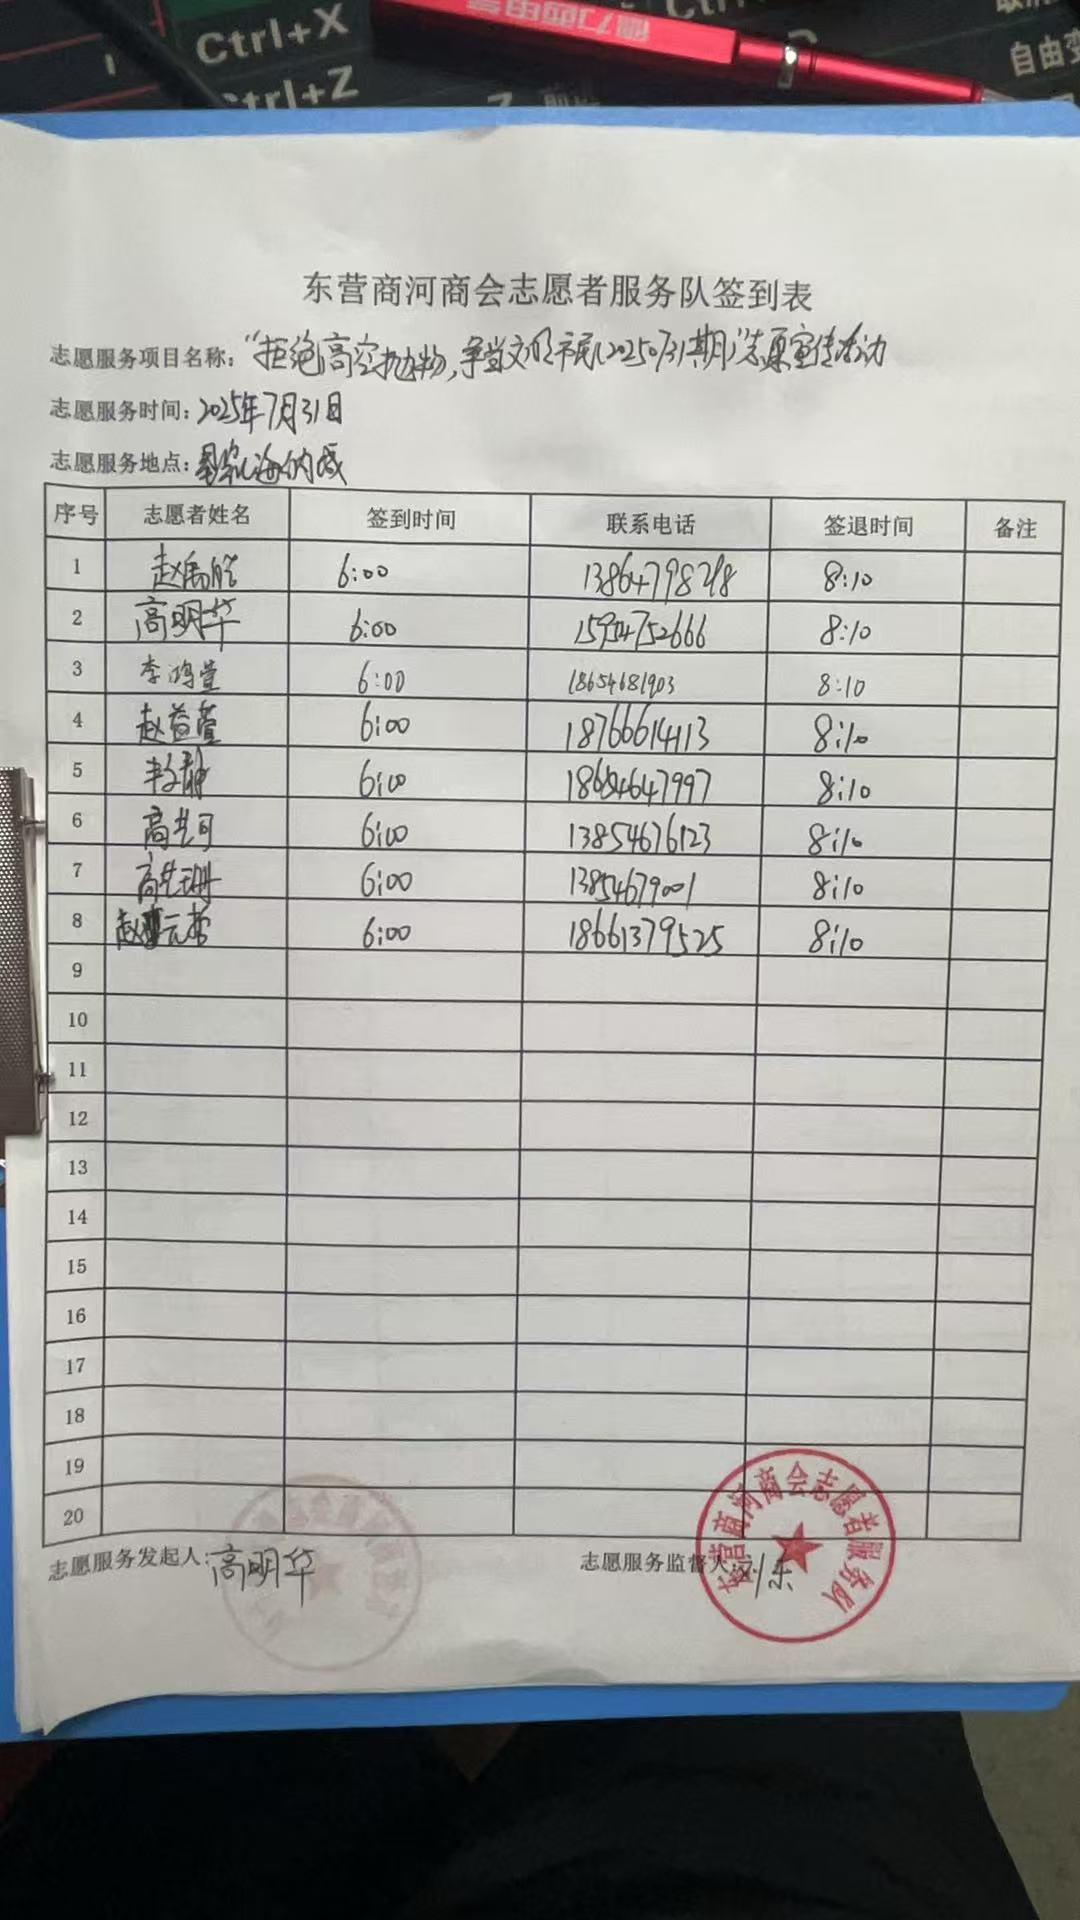 Ctrl+X
Ctrl+Z
自由变
东营商河商会志愿者服务队签到表
志愿服务项目名称："拒绝高空抛物，争当文明市民"20250731期志愿宣传活动
志愿服务时间：2025年7月31日
志愿服务地点：
序号 志愿者姓名 签到时间 联系电话 签退时间 备注
1 赵禹皓 6:00 13864798218 8:10
2 高明华 6:00 15954752666 8:10
3 李鸿萱 6:00 18654681903 8:10
4 赵益萱 6:00 18766614413 8:10
5 6:00 18654647997 8:10
6 高艺可 6:00 13854676123 8:10
7 高艺珊 6:00 13854679001 8:10
8 赵元哲 6:00 18661379525 8:10
9
10
11
12
13
14
15
16
17
18
19
20
志愿服务发起人：高明华 志愿服务监督人：刘乐
东营商河商会志愿者服务队